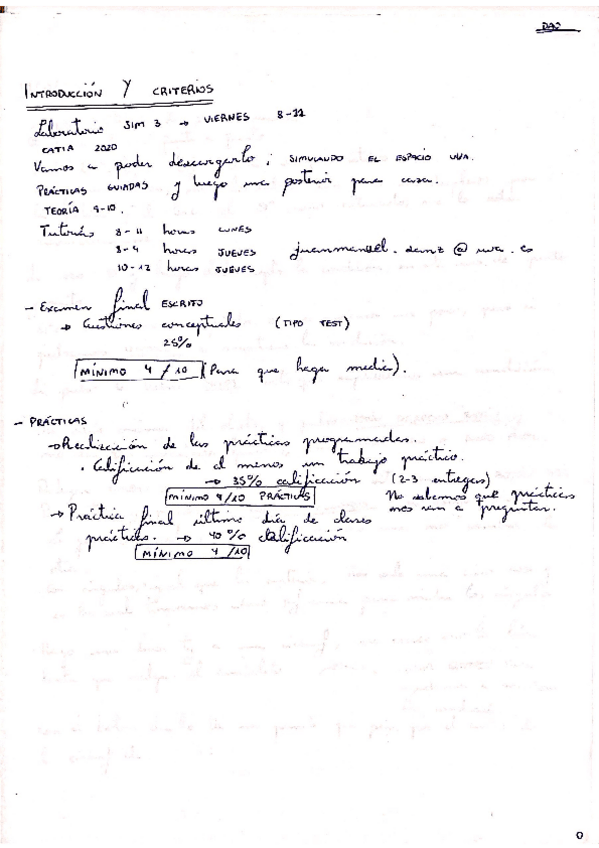 DAO
INTRODUCCIÓN Y CRITERIOS
Laboratorio SIM 3 → VIERNES 8-11
CATIA 2020
Vamos a poder descargarlo; SIMULANDO EL ESPACIO UVA.
PRÁCTICAS GUIADAS y luego una posterior para casa.
TEORÍA 9-10.
Tutorías 8-11 horas LUNES
8-9 horas JUEVES juanmanuel.sanz@uva.es
10-12 horas JUEVES
- Examen final ESCRITO
→ Cuestiones conceptuales (TIPO TEST)
25%
MÍNIMO 4/10 (Para que haga media).
- PRÁCTICAS
→ Realización de las prácticas programadas.
· Calificación de al menos un trabajo práctico.
→ 35% calificación (2-3 entregas)
MÍNIMO 4/10 PRÁCTICAS No sabemos que prácticas
→ Práctica final último día de clases nos van a preguntar.
prácticas. → 40% calificación
MÍNIMO 4/10
0